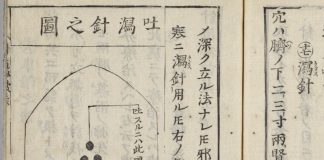 瀉針
穴ハ臍ノ下二三寸兩腎
ノ深ク立ル法ナレ𪜈邪
寒ニ瀉針用レ𪜈右ノ
吐瀉針之圖
吐スルニハ此